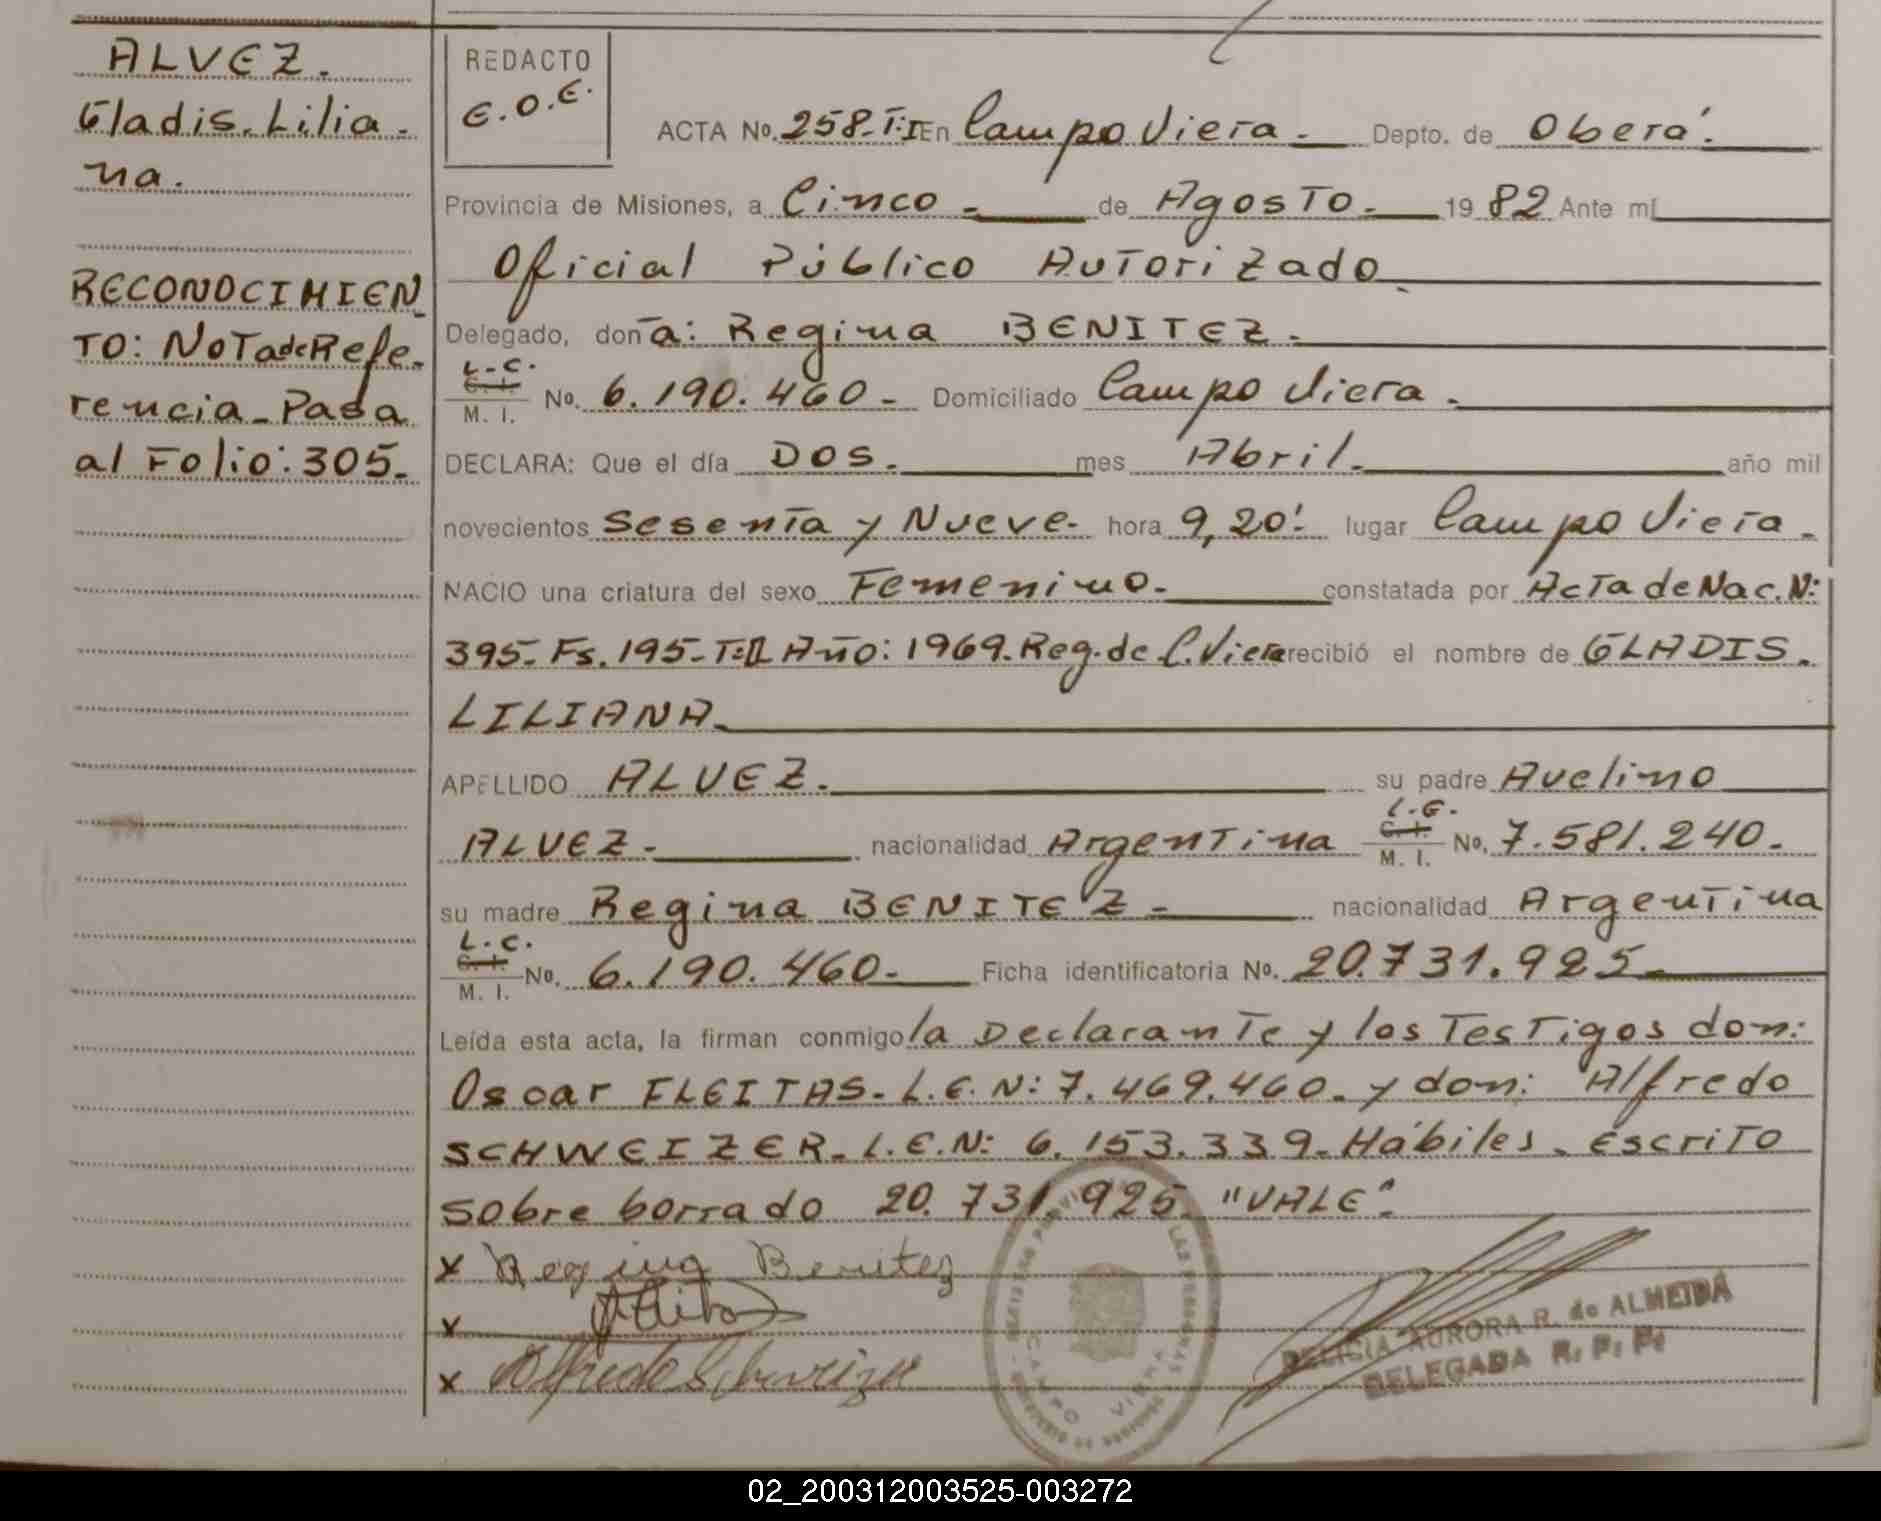 ALVEZ.
Gladis. Lilia-
na.
RECONOCIMIEN-
TO: Nota de Refe-
rencia - Pasa
al Folio: 305.
REDACTO
E.O.E.
ACTA No. 258-T:I En Campo Viera. Depto. de Oberá.
Provincia de Misiones, a Cinco - de Agosto. 19 82 Ante mí
Oficial Público Autorizado.
Delegado, don a: Regina BENITEZ.
L.C.
C. I.
M. I.
No. 6.190.460 - Domiciliado Campo Viera.
DECLARA: Que el día Dos. mes Abril. año mil
novecientos Sesenta y Nueve. hora 9,20' lugar Campo Viera.
NACIO una criatura del sexo Femenino. constatada por Acta de Nac. N:
395. Fs. 195. T:II Año: 1969. Reg. de C. Viera recibió el nombre de GLADIS.
LILIANA.
APELLIDO ALVEZ. su padre Avelino
ALVEZ. nacionalidad Argentina L.E. C. I. M. I. No. 7.581.240.
su madre Regina BENITEZ - nacionalidad Argentina
L.C.
C. I.
M. I.
No. 6.190.460. Ficha identificatoria No. 20.731.925.
Leída esta acta, la firman conmigo la Declarante y los Testigos don:
Oscar FLEITAS. L.E.N: 7.469.460. y don: Alfredo
SCHWEIZER. L.E.N: 6.153.339. Hábiles. Escrito
sobre borrado 20.731.925. "VALE".
x Regina Benitez
x
x Alfredo Schweizer
CAMPO VIERA
DELICIA AURORA R. de ALMEIDA
DELEGADA R. P. P.
02_200312003525-003272